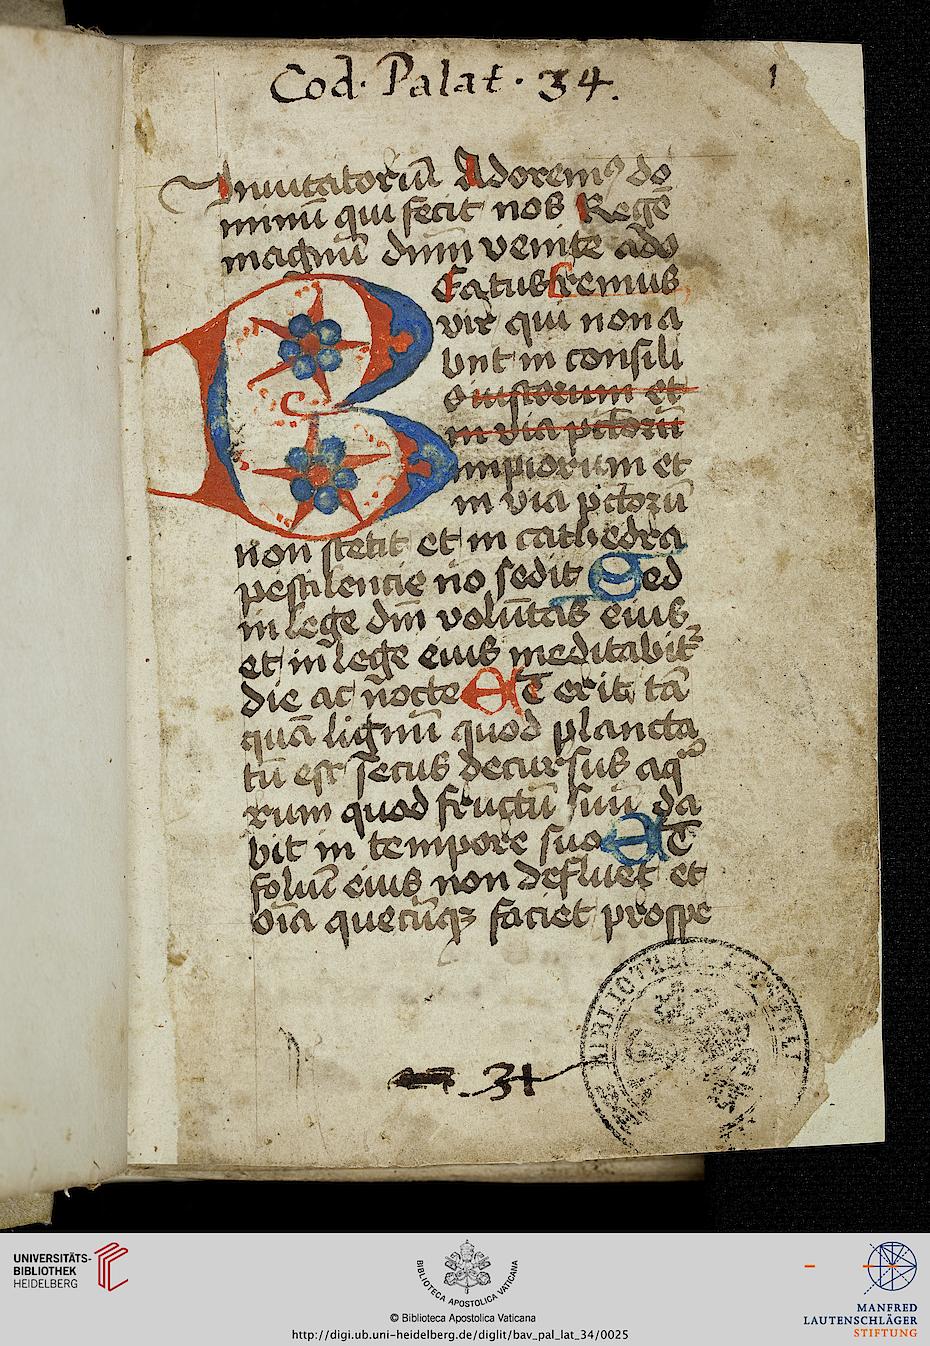 Cod. Palat. 34.
1
Inuitatoriū Adoremꝰ do
minū qui fecit nos Regē
magnū dnm venite ado
Eatus remus
vir qui non a
biit in consili
o iustorum et
in via pctōrū
impiorum et
in via pctōrū
non stetit et in cathedra
pestilencie nō sedit Sed
in lege dni volūtas eius
et in lege eius meditabit᷑
die ac nocte Et erit tā
quā lignū quod plancta
tū est secus decursus aqͣ
rum quod fructū suū da
bit in tempore suo Et
foliū eius non defluet et
oīa quecūqꝫ faciet prospe
34
BIBLIOTHECA
UNIVERSITÄTS-
BIBLIOTHEK
HEIDELBERG
BIBLIOTECA APOSTOLICA VATICANA
© Biblioteca Apostolica Vaticana
http://digi.ub.uni-heidelberg.de/diglit/bav_pal_lat_34/0025
MANFRED
LAUTENSCHLÄGER
STIFTUNG